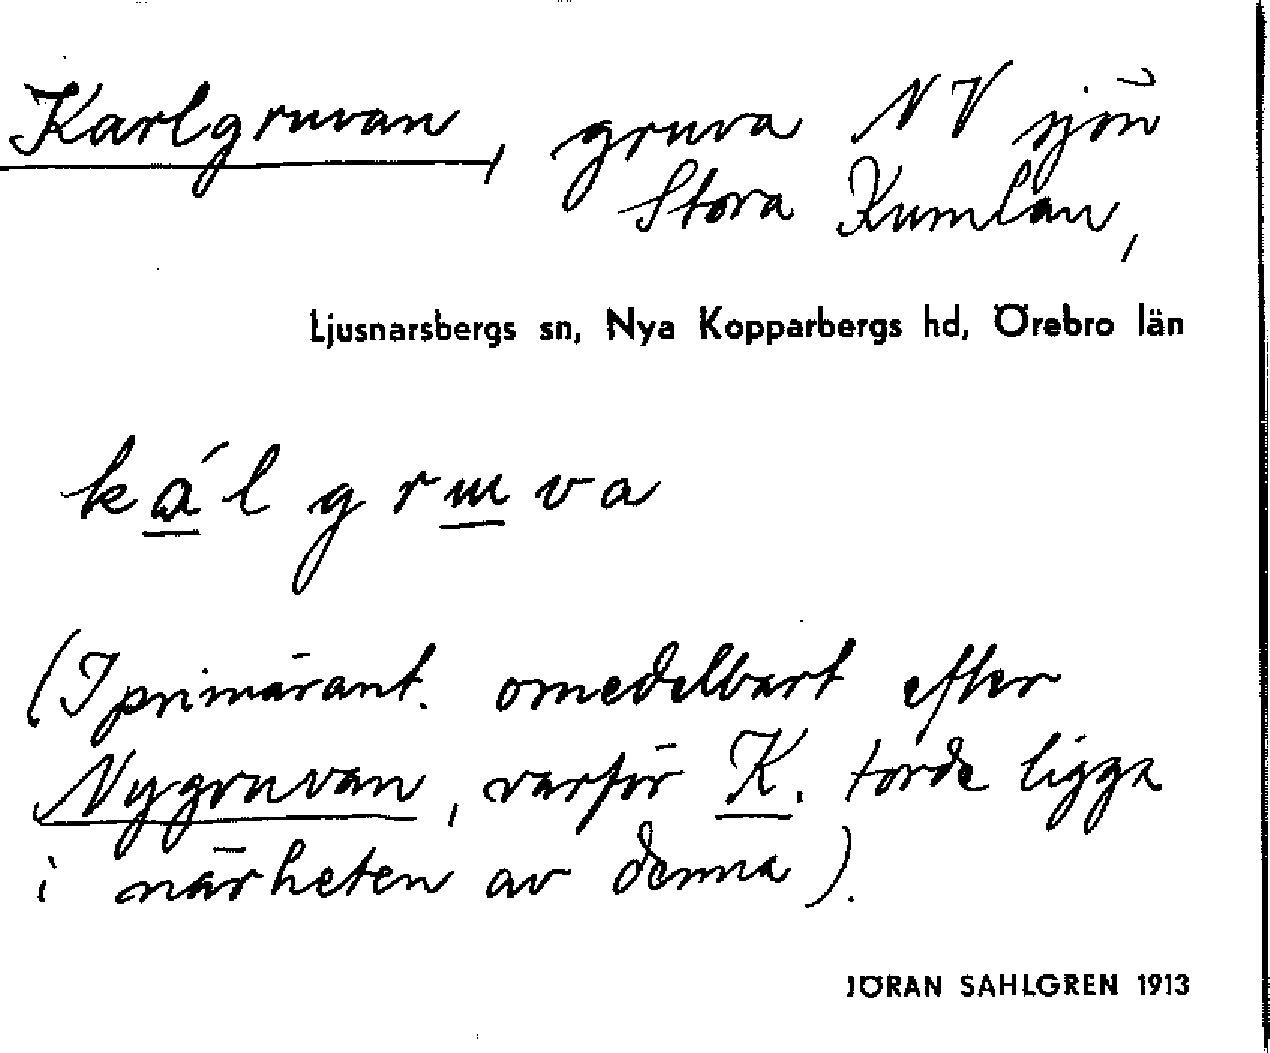 Karlgruvan, gruva NV sjön
Stora Kumlan,
Ljusnarsbergs sn, Nya Kopparbergs hd, Örebro län
kál gruva
(I primärant. omedelbart efter
Nygruvan, varför K. torde ligga
i närheten av denna).
JÖRAN SAHLGREN 1913